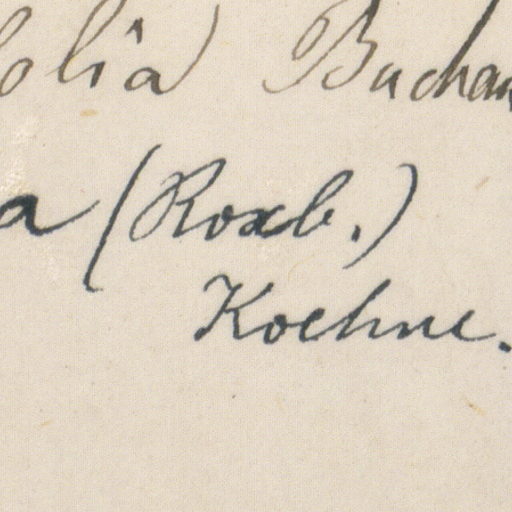 folia Buchan
a (Roxb.)
Koehne.